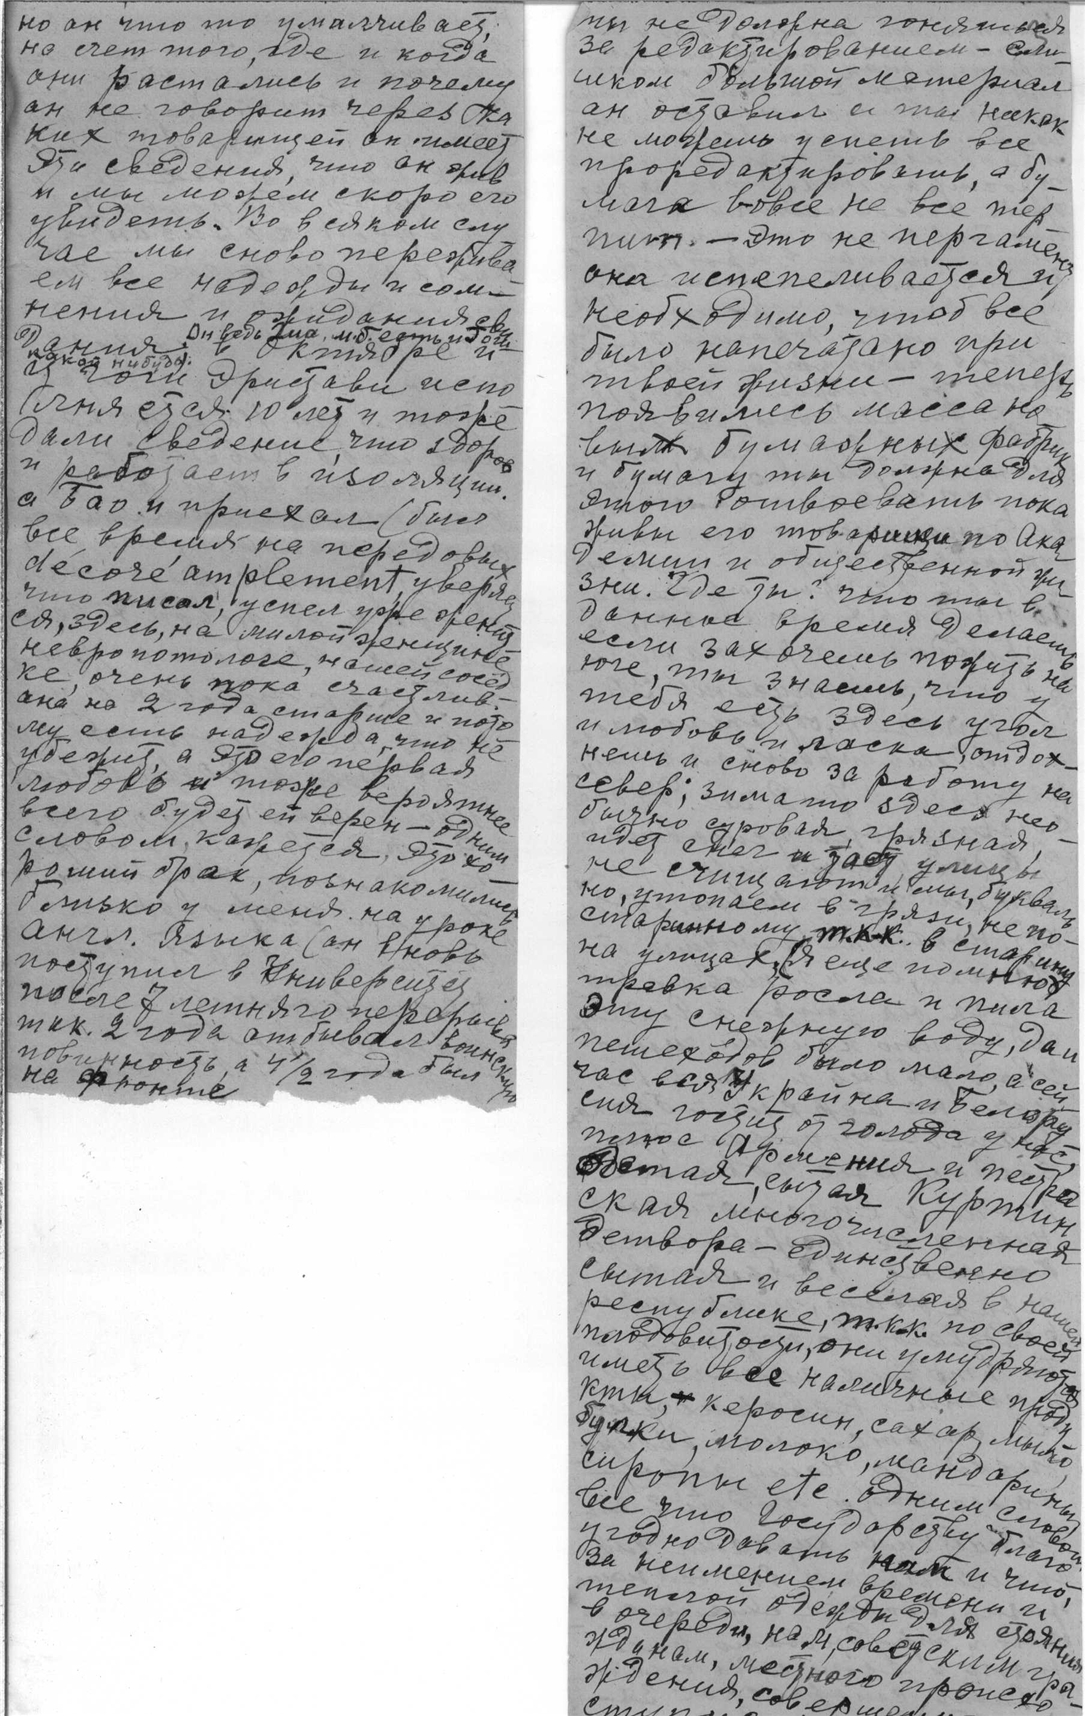 но он что то умалчивает,
на счет того, где и когда
они растались и почему
он не говорит через ка
ких товарищей он имеет
эти сведения, что он жив
и мы можем скоро его
увидеть. Во всяком слу
чае мы сново пережива
ем все надежды и сом-
нения и ожидания сви
дания.
Он ведь
какой нибудь.
в октябре и
у Гоги Эристави испо
лняется 10 лет и тоже
дали сведение, что здоров
и работает в изоляции.
а Бао и приехал (был
все время на передовых
décoré amplement, уверяет
что писал, успел уже женит
ся, здесь, на милой женщине
невропотологе, нашей сосед
ке, очень пока счастлив.
она на 2 года старше и пото
му есть надежда, что не
убежит, а это его первая
любовь и тоже вероятнее
всего будет ей верен — одним
словом, кажется, это хо
роший брак, познакомились
близко у меня на уроке
Англ. языка (он вновь
поступил в Университет
после 7 летняго перерыва
т.к. 2 года отбывал воинскую
повинность, а 4 1/2 года был
на фронте
ты не должна гоняться
за редактированием — сли-
шком большой материал
он оставил и ты никак
не можешь успеть все
проредактировать, а бу-
мага вовсе не все тер
пит. — Это не пергамент
она испепеливается и
необходимо, чтоб все
было напечатано при
твоей жизни — теперь
появились масса но
вых бумажных фабрик
и бумагу ты должна для
этого отвоевать пока
живы его товарищи по Ака
демии и общественной жи
зни. Где ты? Что ты в
данное время делаешь
если захочешь пожить на
юге, ты знаешь, что у
тебя есть здесь угол
и любовь и ласка, отдох-
нешь и сново за работу на
север; зима то здесь нео-
бычно суровая, грязная,
идет снег и тает улицы
не счищают и мы, букваль
но, утопаем в грязи, не по-
старинному, т.к. в старину
на улицах (я еще помню)
травка росла и пила
эту снежную воду, да и
пешеходов было мало, а сей
час вся Украйна и Белору
сия гостит от голода у нас,
плюс Армения и пестро
одетая, сытая Куртин
ская многочисленная
детвора — единственно
сытая и веселая в нашей
республике, т.к. по своей
плодовитости, они умудряются
иметь все наличные проду
кты, керосин, сахар, мыло,
булки, молоко, мандарины,
сиропы etc. Одним словом
все что Государству благо
угодно давать нам и что,
за неимением времени и
теплой одежды для стояния
в очереди, нам, советским гра-
жданам, местного происхо
ждения,